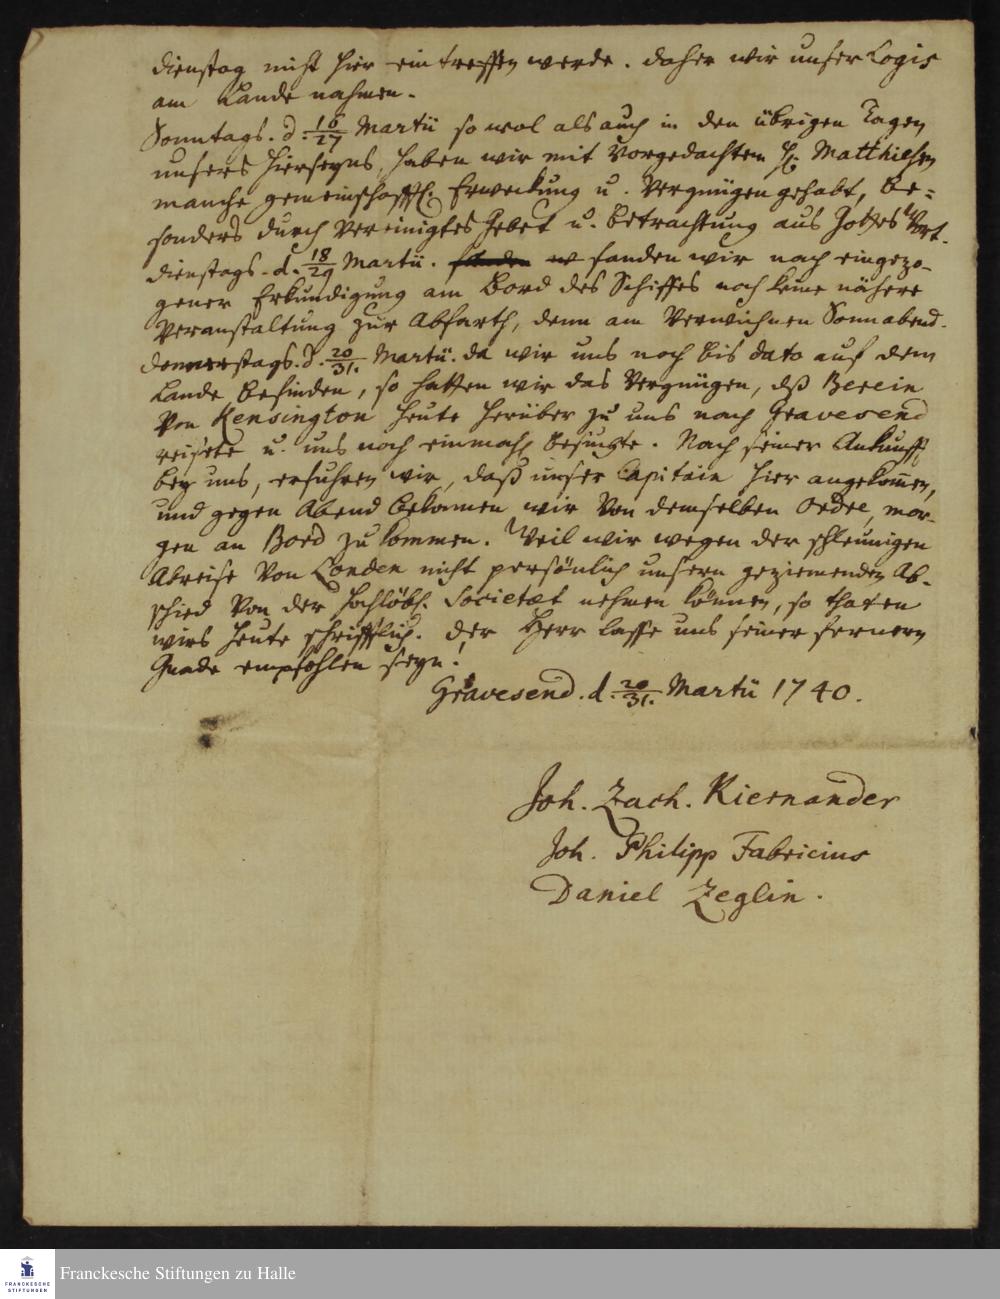 dienstag nicht hier eintreffen werde. daher wir unser Logis
am Lande nahmen.
Sonntags. d. 16/27 Martii so wol als auch in den übrigen Tagen
unsers Hierseyns, haben wir mit vorgedachtem H. Matthiesen
manche gemeinschafftl. Erweckung u. Vergnügen gehabt, be-
sonders durch vereinigtes Gebet u. Betrachtung aus Gottes Wort.
dienstags. d. 18/29 Martii. fanden wir nach eingezo-
gener Erkundigung am Bord des Schiffes noch keine nähere
Veranstaltung zur Abfarth, denn am verwichnen Sonnabend.
donnerstags. d. 20/31. Martii. da wir uns noch bis dato auf dem
Lande befinden, so hatten wir das Vergnügen, dß Berein
von Kensington heute herüber zu uns nach Gravesend
reisete u. uns noch einmahl besuchte. Nach seiner Ankunfft
bey uns, erfuhren wir, daß unser Capitain hier angekom̃en,
und gegen Abend bekamen wir von demselben Ordre, mor-
gen an Bord zu kommen. Weil wir wegen der schleunigen
Abreise von Londen nicht persönlich unsern geziemenden Ab-
schied von der Hochlöbl. Societæt nehmen können, so thaten
wirs heute schrifftlich. der Herr lasse uns seiner fernern
Gnade empfohlen seyn!
Gravesend. d. 20/31. Martii 1740.
Joh. Zach. Kiernander
Joh. Philipp Fabricius
Daniel Zeglin.
FRANCKESCHE
STIFTUNGEN
Franckesche Stiftungen zu Halle